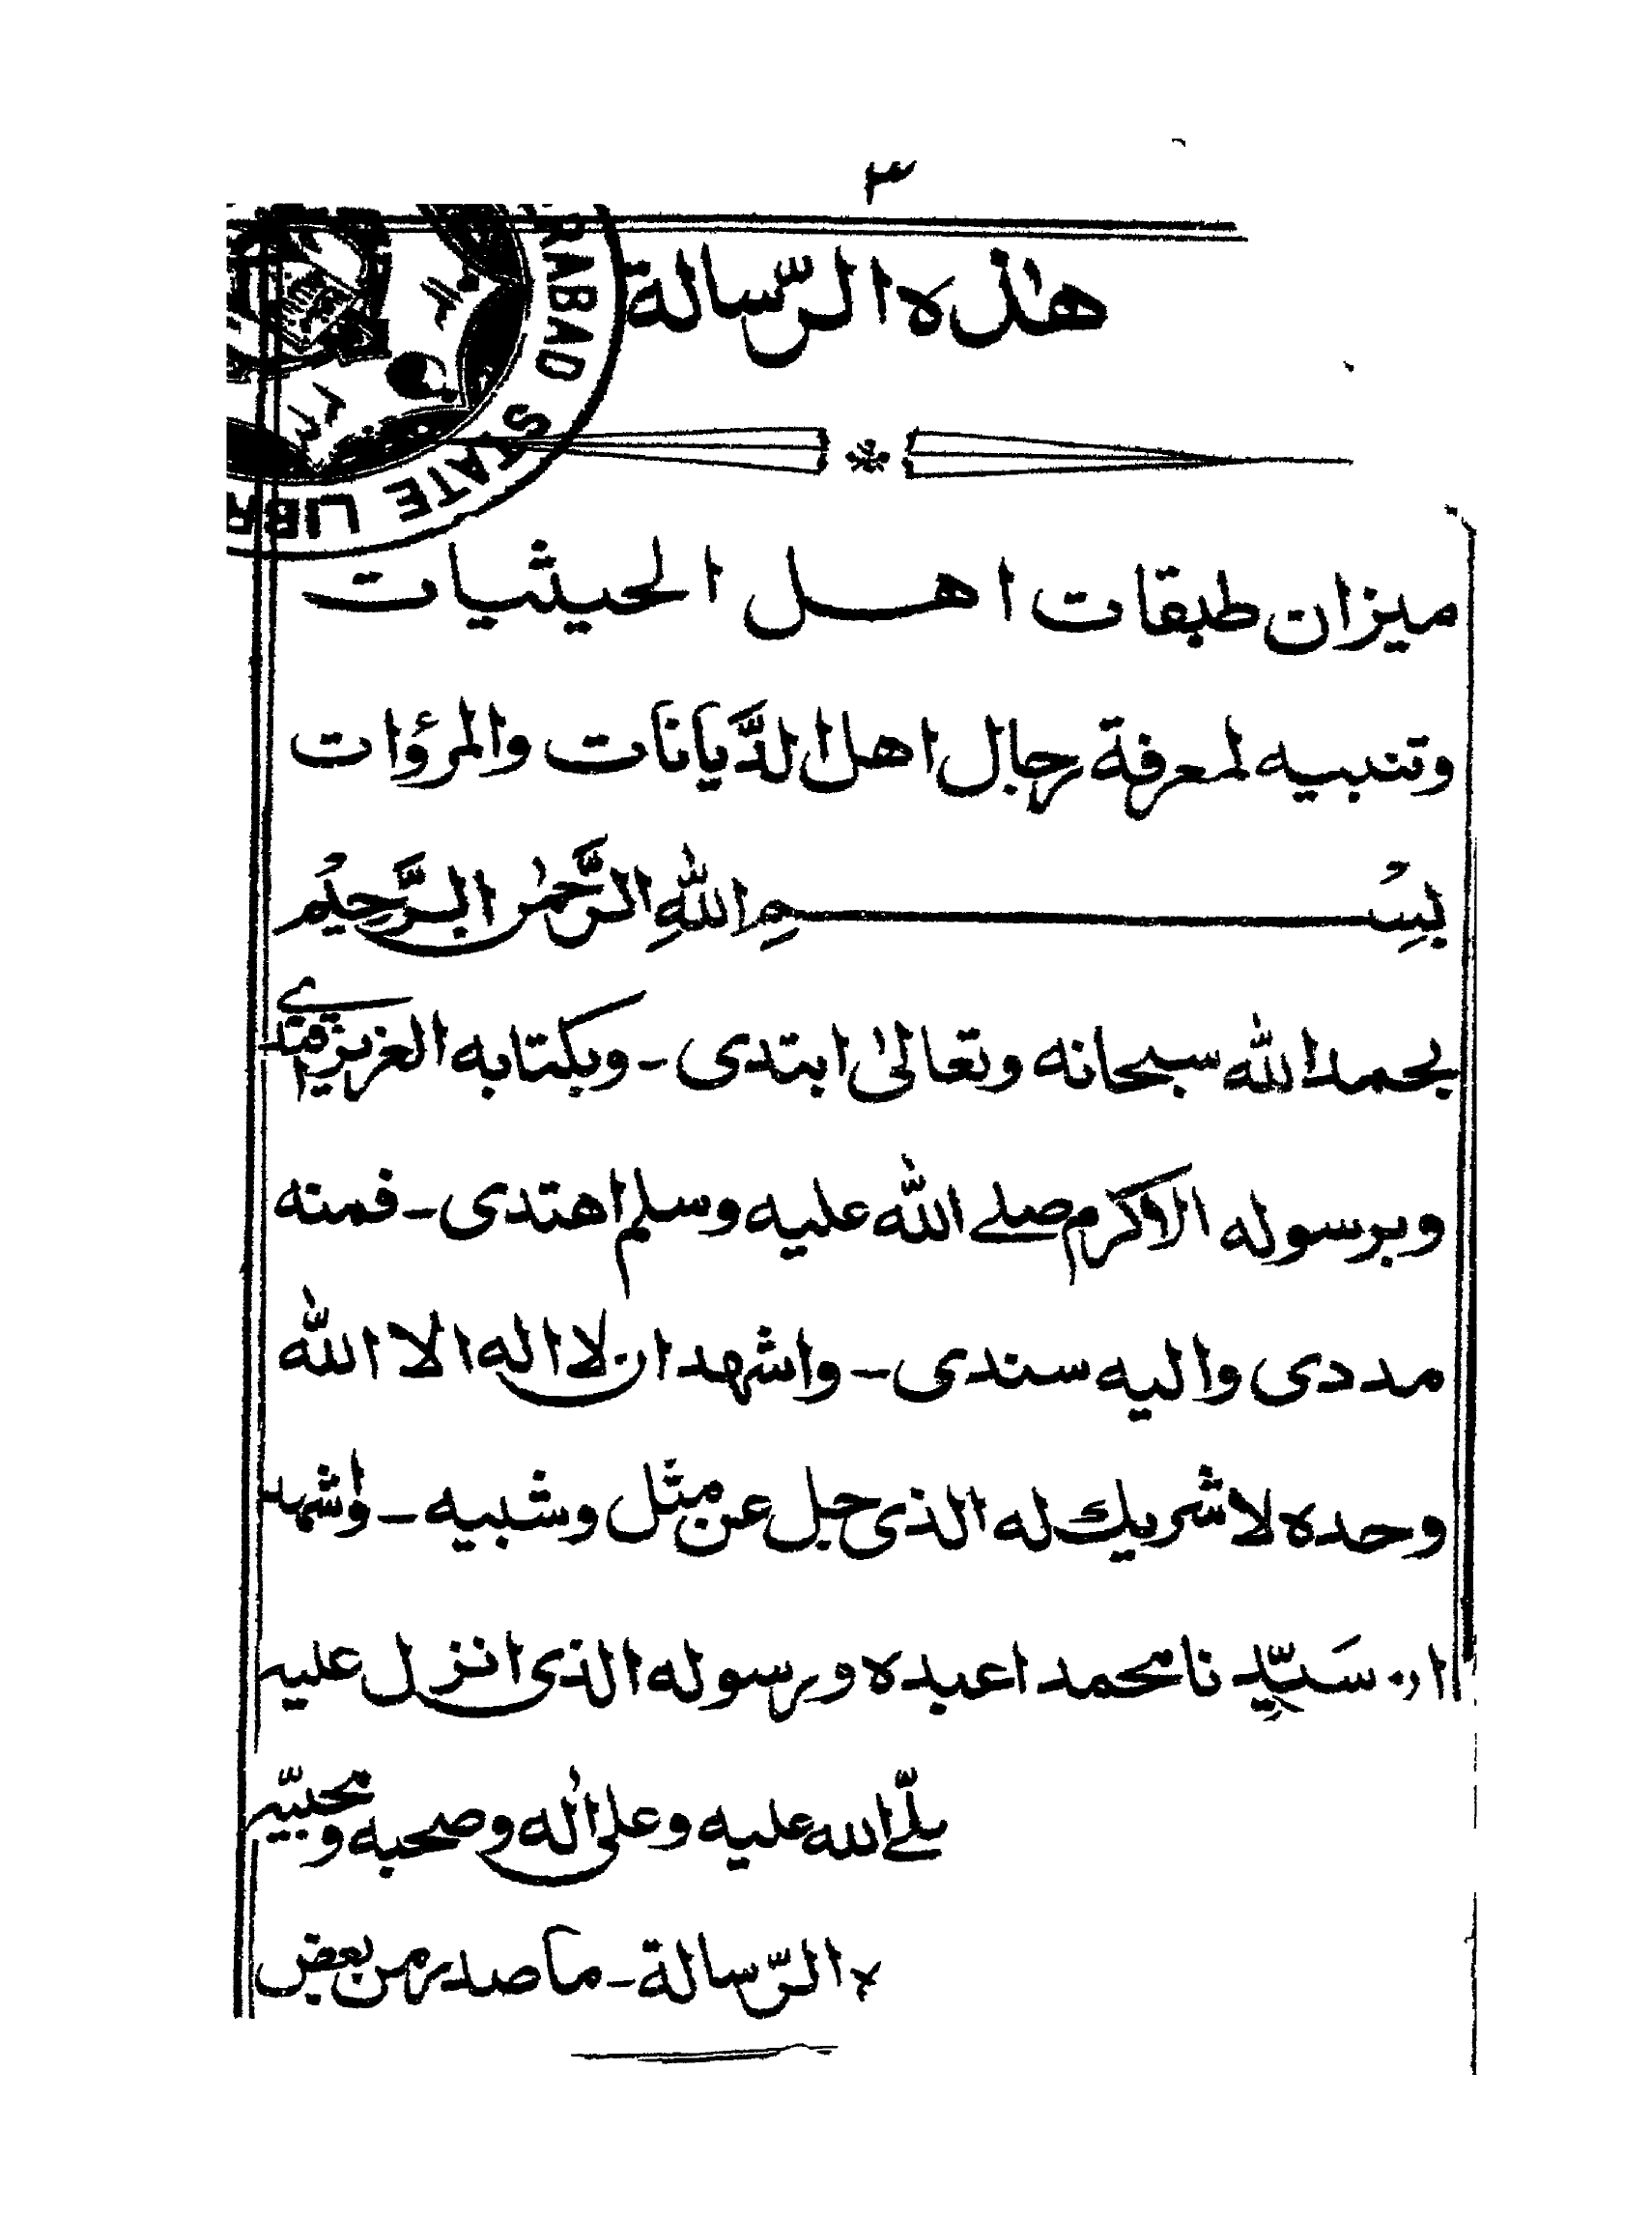 ٣
هٰذه الرّسالة
RABAD STATE LIBR
ميزان طبقات اهل الحيثيات
وتنبيه لمعرفة رجال اهل الدَّيانات والمرؤات
بسْمِ اللّٰهِ الرَّحمٰن الرَّحيْم
بحمد اللّٰه سبحانه وتعالیٰ ابتدی - وبکتابه العزيز مقتدے
وبرسوله الاکرم صلے اللّٰه عليه وسلم اهتدی - فمنه
مددی واليه سندی - واشهد ان لا اله الا اللّٰه
وحده لا شريك له الذی جل عن مثل وشبيه - واشهد
ان سَيّدِنا محمدا عبده ورسوله الذی انزل عليه
اللّٰه عليه وعلی اٰله وصحبه ومحبيّه
الرّسالة - ما صدر من بعض